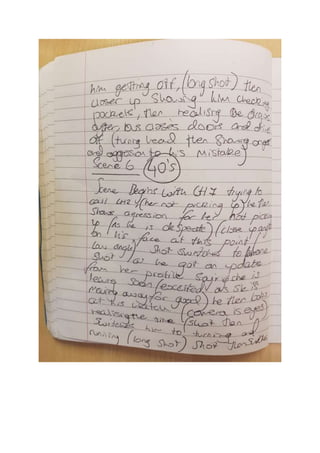 him getting off, (long shot) then
closer up showing him checking
pockets, then realising he
after bus closes doors and drive
off (turns head then showing anger
and aggression to his mistake)
Scene 6 40's
Scene Begins with CH1 trying to
call CH2 (her not picking up) he then
shows agression for her not picking
up (as he is desperate) (close up
on his face at this point
low angle) shot switches to phone
shot as he got an update
from her profile saying she is
leaving soon (excited as she is
moving away for good) he then looks
at his watch (camera is eyes)
realising the time (shot then
switches him to turning and
running (long shot) shot then